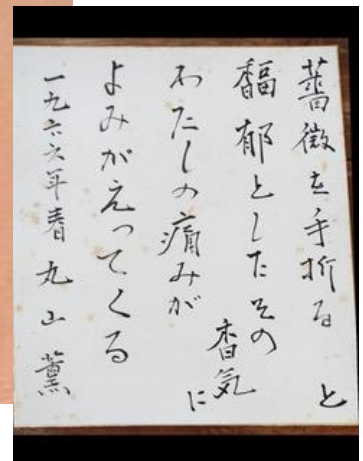 薔薇を手折ると
馥郁としたその
香気に
わたしの痛みが
よみがえってくる
一九六六年春 丸山薫